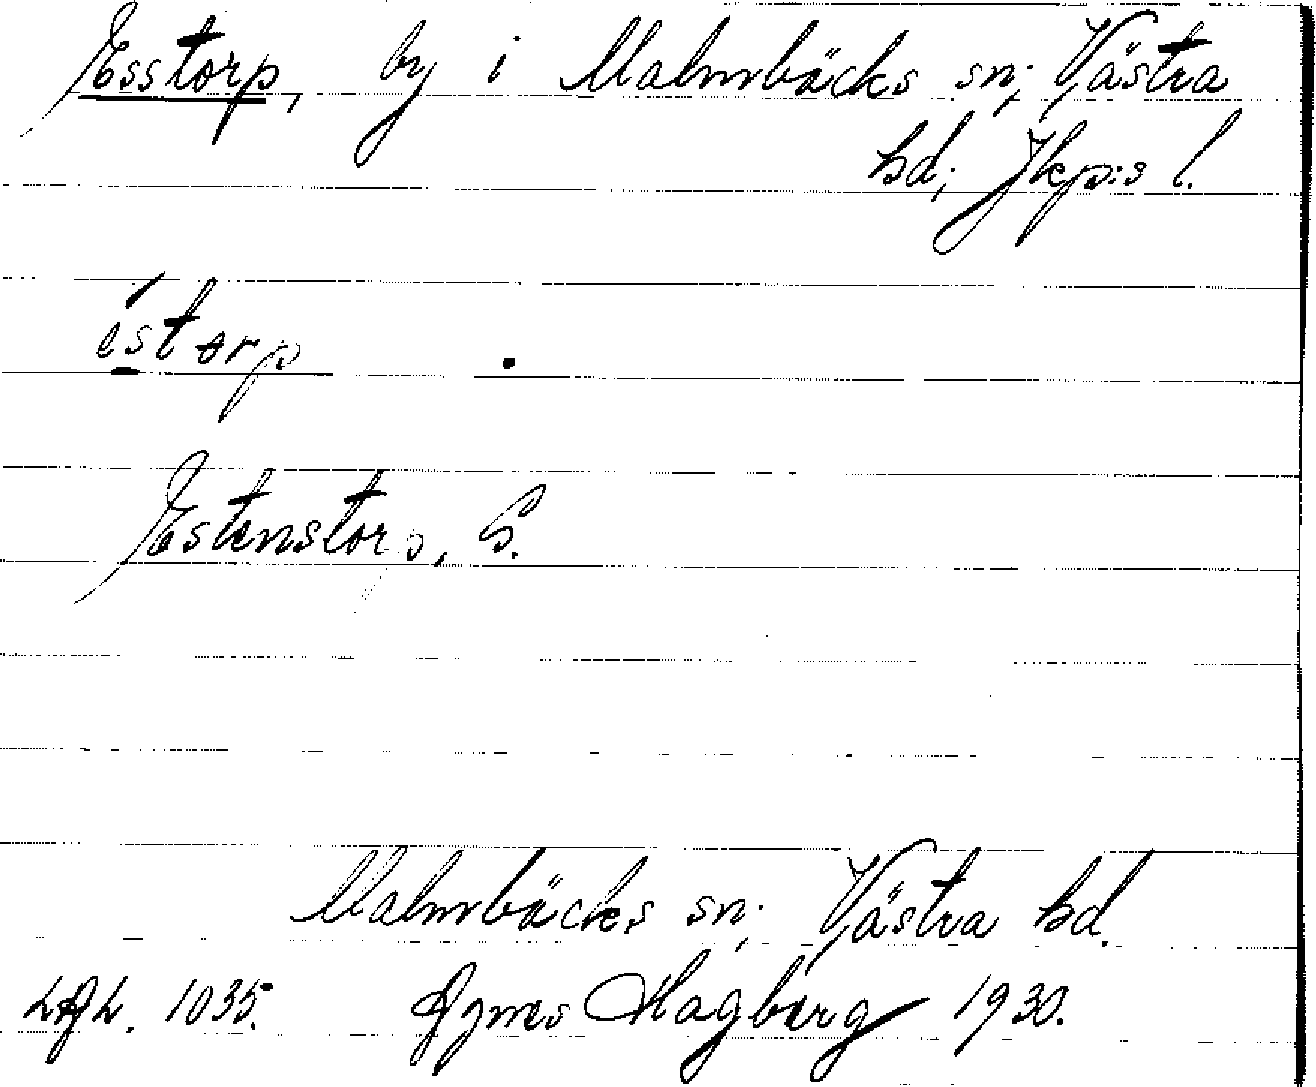 Esstorp, by i Malmbäcks sn; Västra
hd; Jkp:s l.
éstorp
Estenstorp, S.
Malmbäcks sn; Västra hd.
LAL. 1035. Agnes Hagberg 1930.